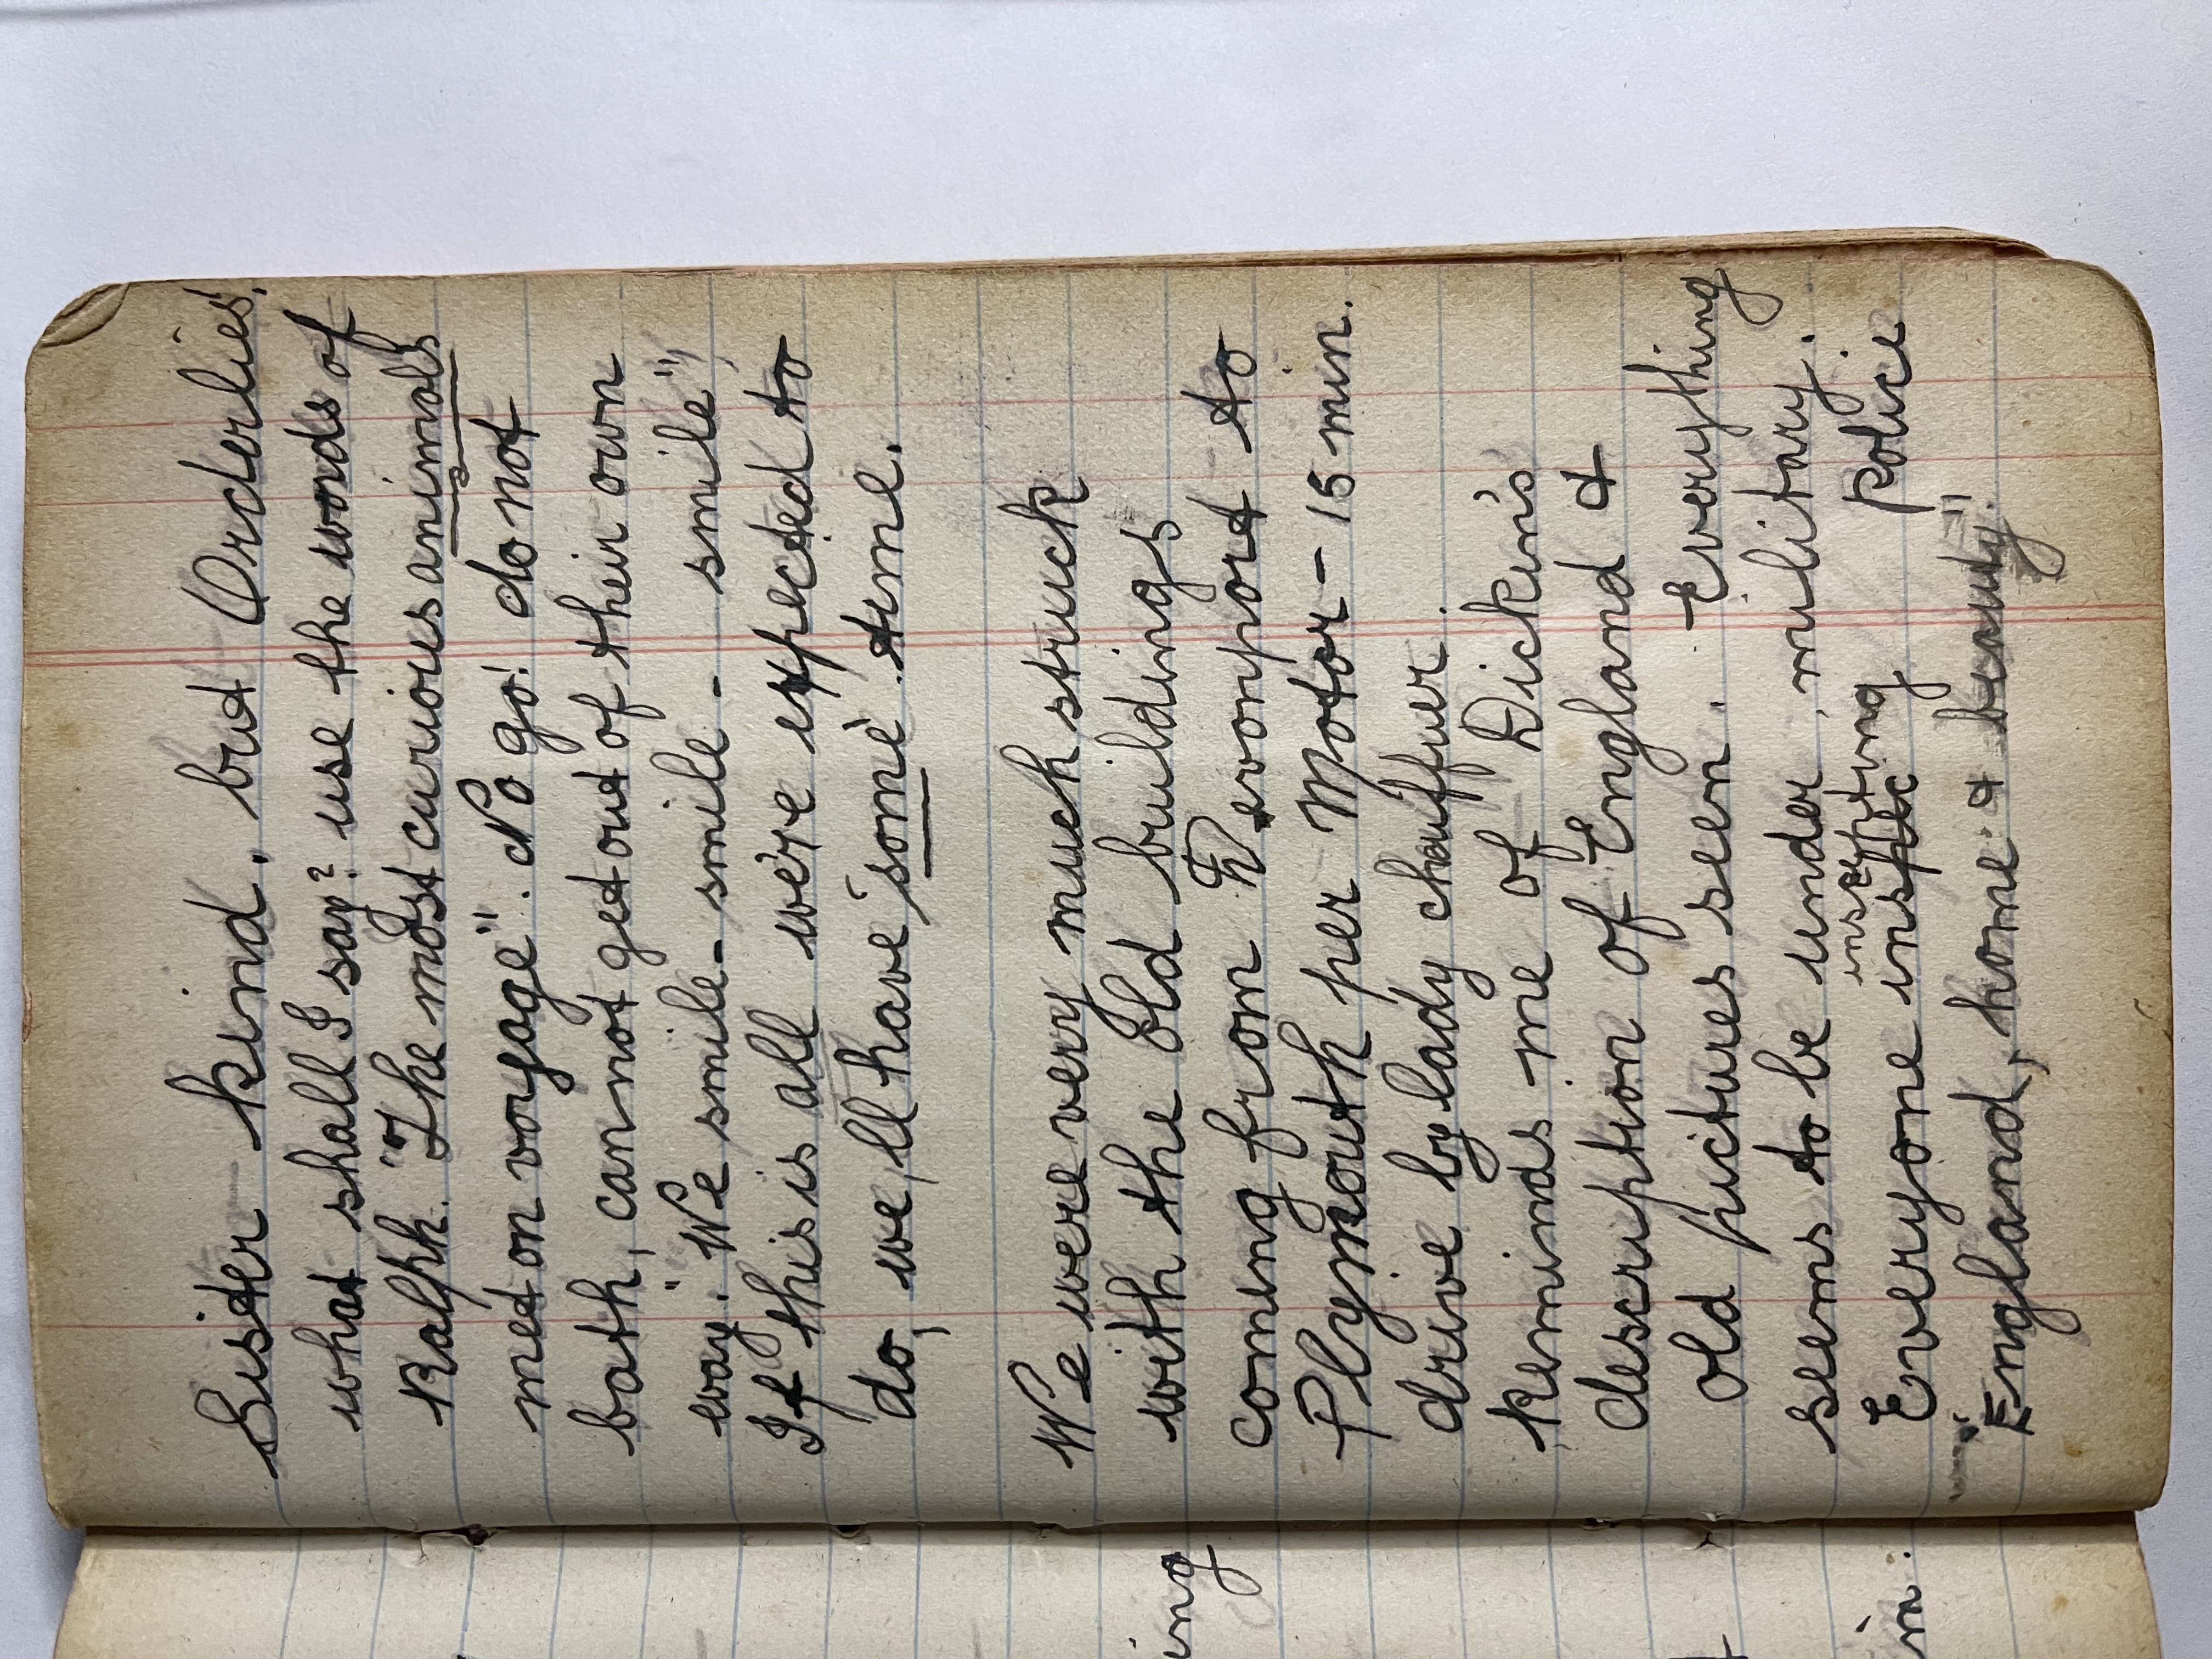 Sister kind, but Orderlies,
what shall I say? use the words of
Ralph. "The most curious animals
met on voyage". No go! do not
bath, cannot get out of their own
way. "We smile - smile - smile - smile",
If this is all we're expected to
do, we'll have 'some' time.
We were very much struck
with the old buildings
coming from Devonport to
Plymouth per Motor - 15 min.
drive by lady chauffuer.
Reminds me of Dickin's
description of England &
old pictures seen. Everything
seems to be under military.
Everyone inspec inscepting police
"England, home & beauty"
ing
in.